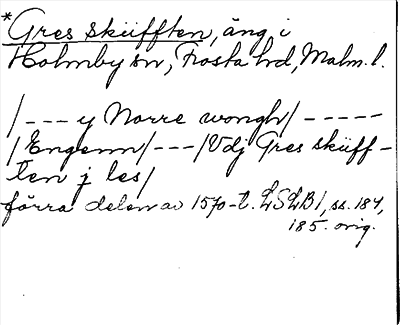 *Gres sküfften, äng i
Holmby sn, Frosta hd, Malm. l.
/--- y Norre wongh/-----
/Engenn/---/Vdj Gres skiiff-
ten j les/
förra delen av 1570-t. LSLB 1, ss. 184,
185. orig.